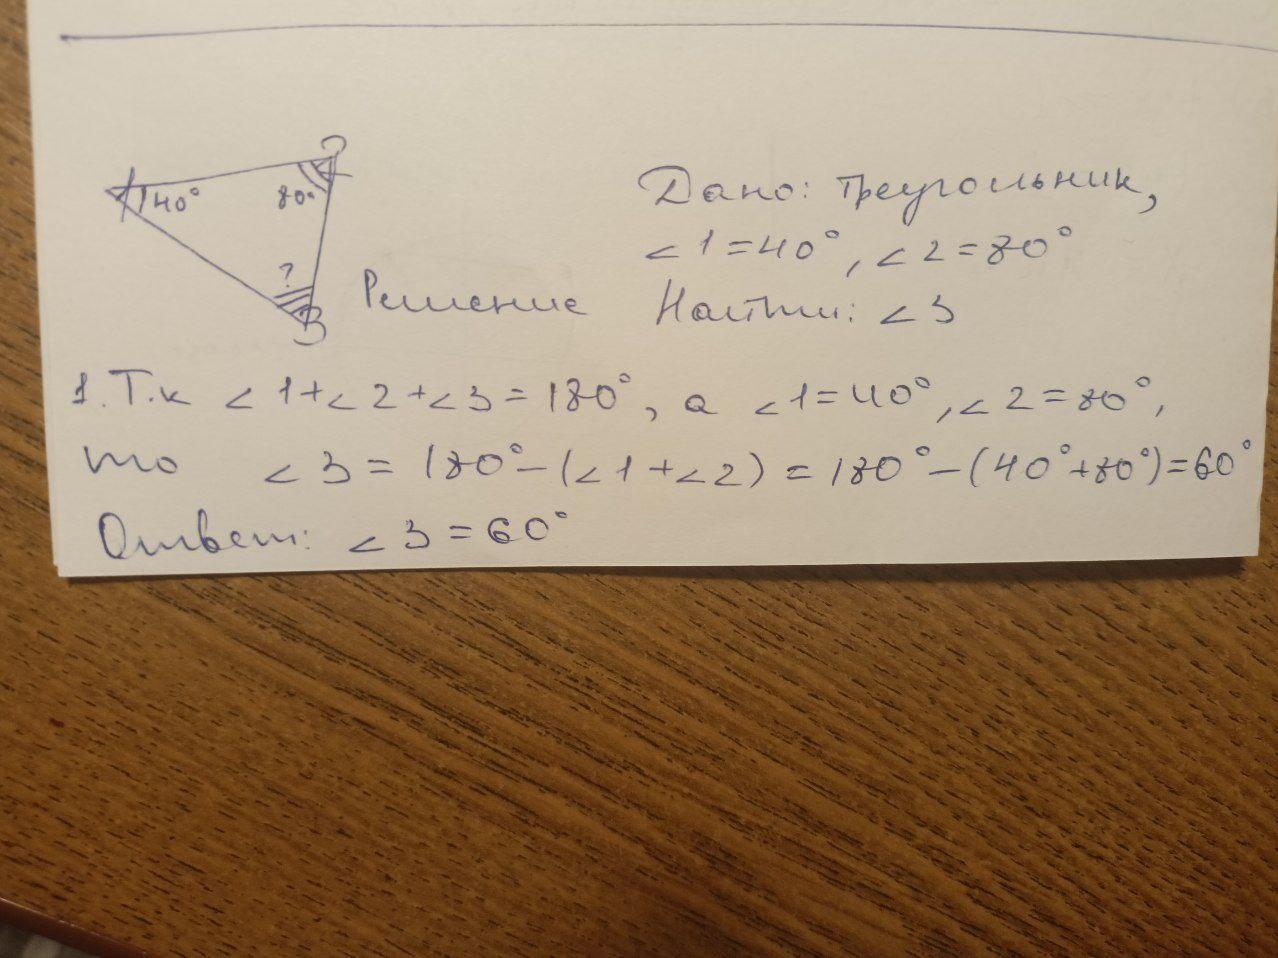 2
1
40°
80°
?
3
Дано: треугольник,
∠1=40°, ∠2=80°
Решение
Найти: ∠3
1. Т.к ∠1+∠2+∠3=180°, а ∠1=40°, ∠2=80°,
то ∠3=180°-(∠1+∠2)=180°-(40°+80°)=60°
Ответ: ∠3=60°